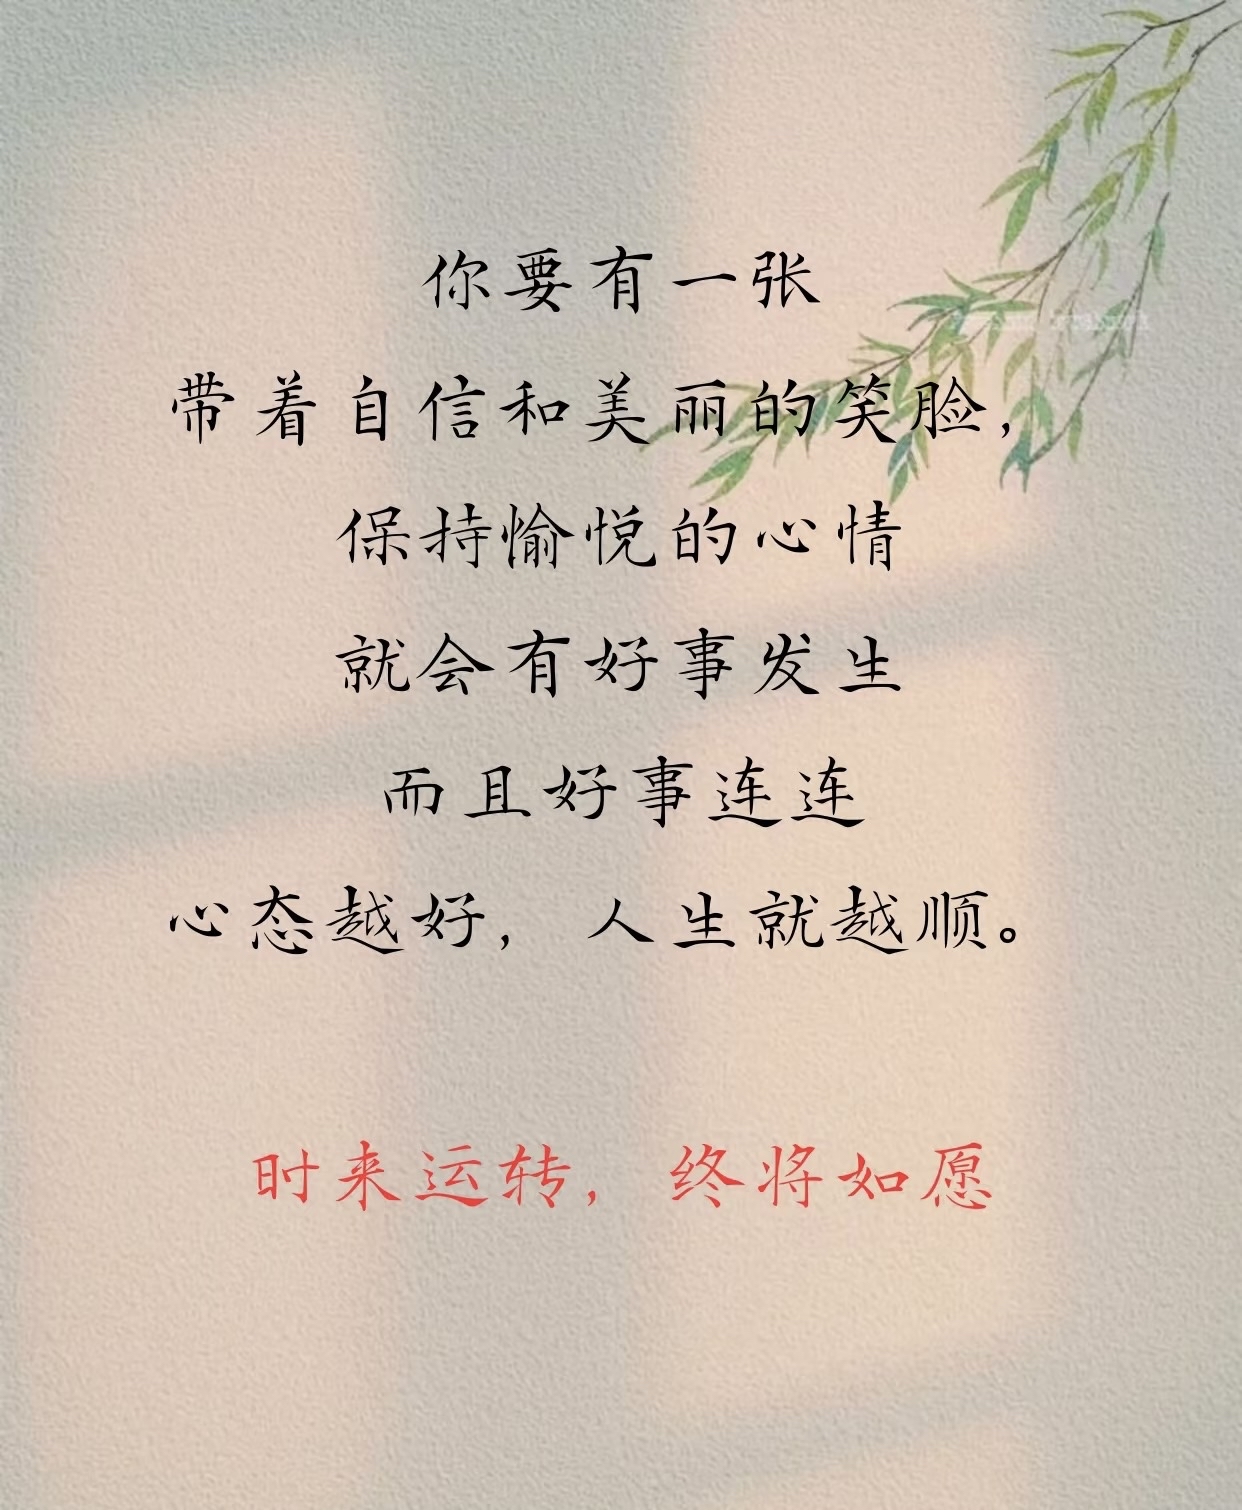 你要有一张
带着自信和美丽的笑脸，
保持愉悦的心情
就会有好事发生
而且好事连连
心态越好，人生就越顺。
时来运转，终将如愿